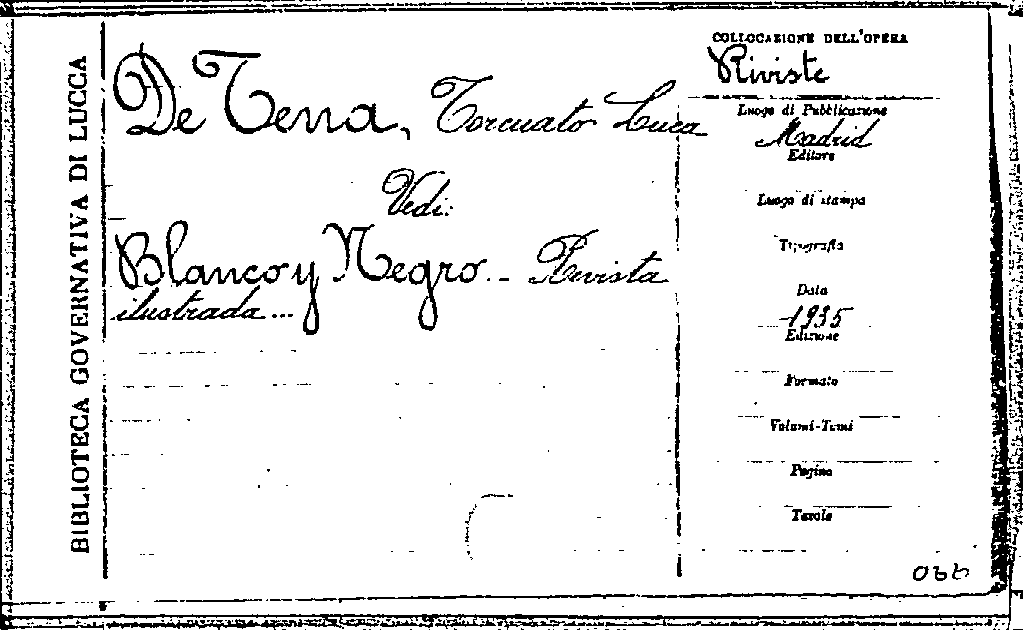 BIBLIOTECA GOVERNATIVA DI LUCCA
De Tena, Torcuato Luca
Vedi:
Blanco y Negro. - Rivista
ilustrada...
COLLOCAZIONE DELL'OPERA
Riviste
Luogo di Pubblicazione
Madrid
Editore
Luogo di stampa
Tipografia
Data
1935
Edizione
Formato
Volumi-Tomi
Pagine
Tavole